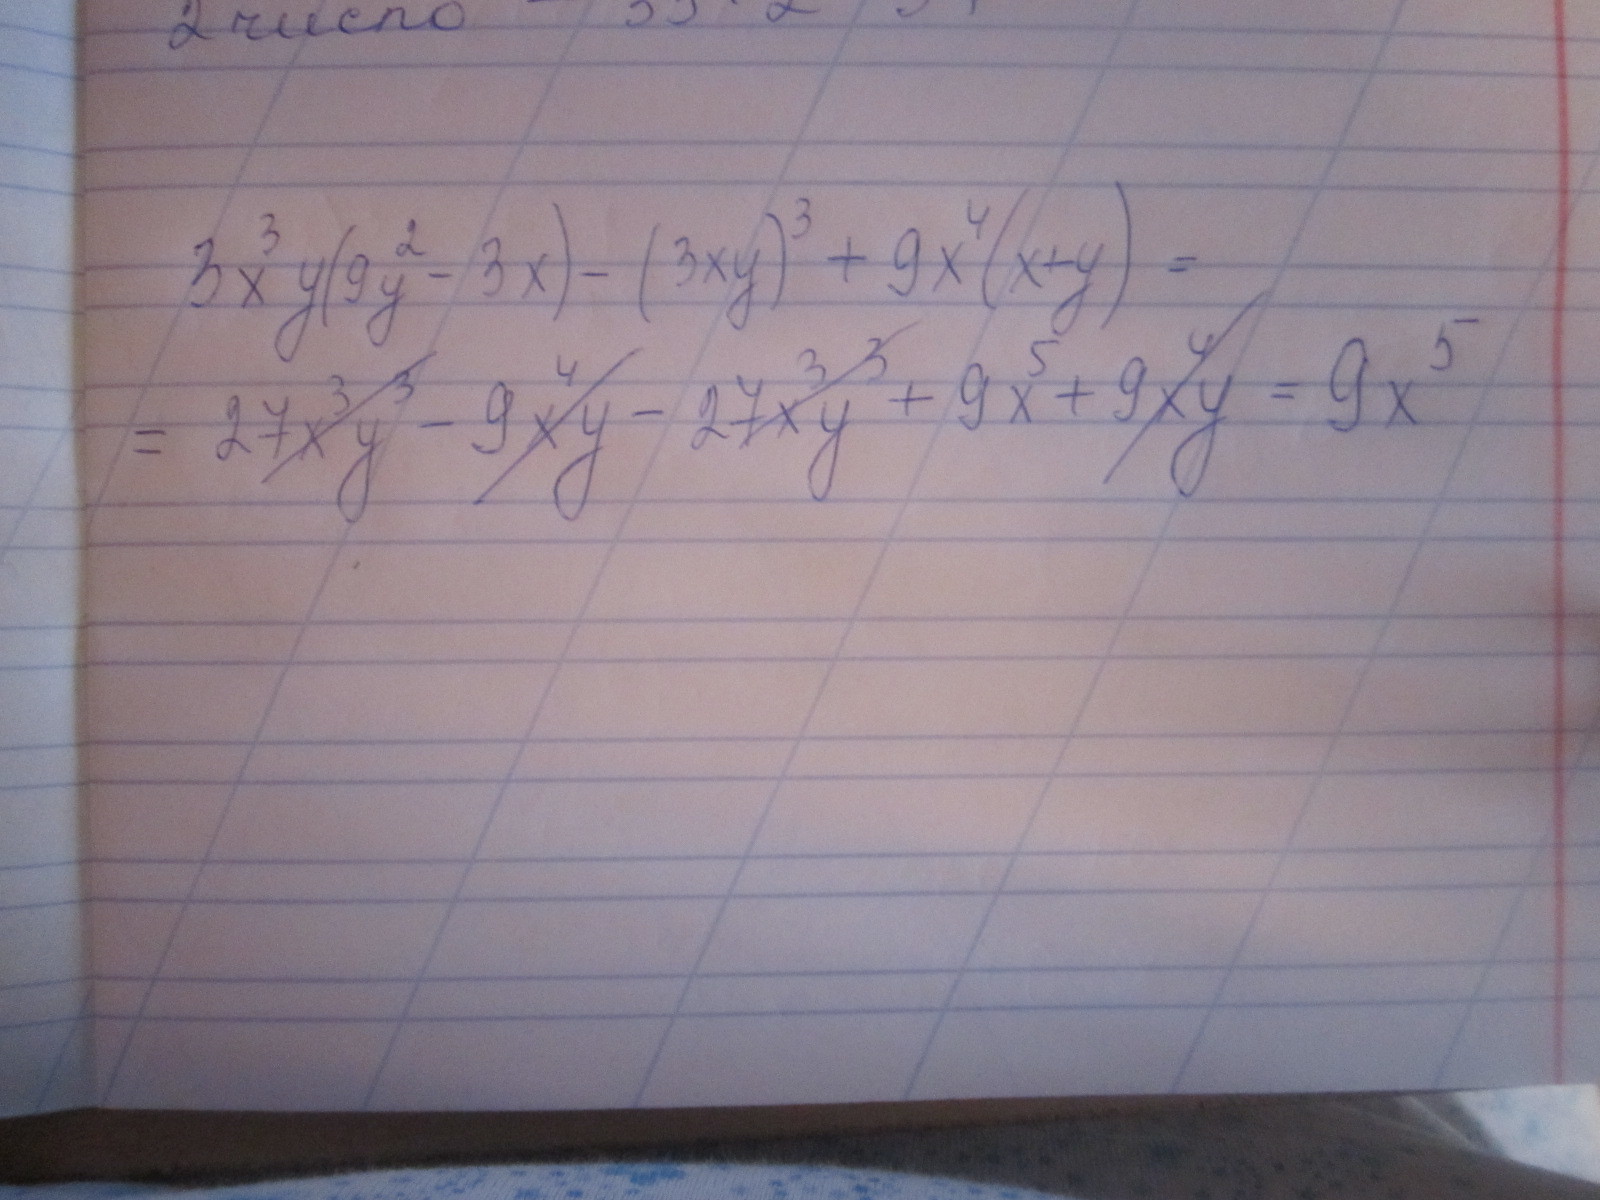 2 число
3x³y(9y² - 3x) - (3xy)³ + 9x⁴(x+y) =
= 27x³y³ - 9x⁴y - 27x³y³ + 9x⁵ + 9x⁴y = 9x⁵